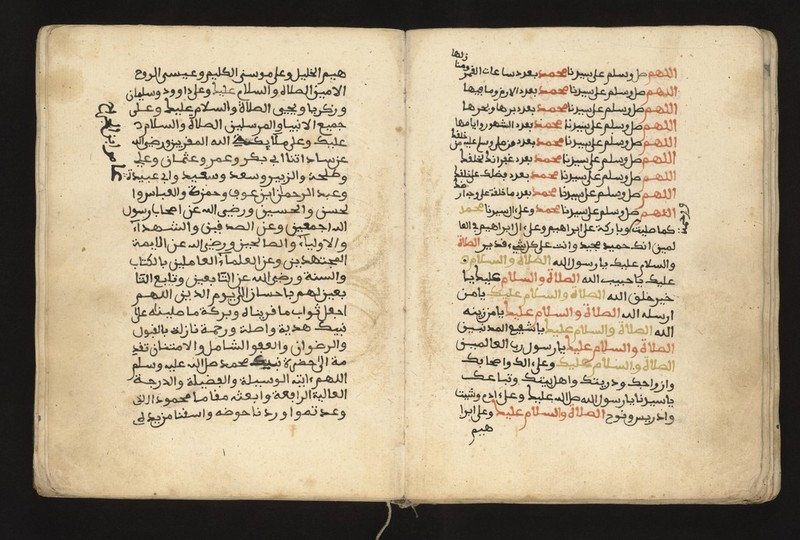 اللهم صل وسلم على سيدنا محمد بعدد ساعات
اللهم صل وسلم على سيدنا محمد بعدد الارض وما فيها
اللهم صل وسلم على سيدنا محمد بعدد برها وبحرها
اللهم صل وسلم على سيدنا محمد بعدد الشهور وايامها
اللهم صل وسلم على سيدنا محمد بعدد من صل وسلم عليه من خلقك
اللهم صل وسلم على سيدنا محمد بعدد غفرانك لخلقك
اللهم صل وسلم على سيدنا محمد بعدد فضلك على خلقك
اللهم صل وسلم على سيدنا محمد بعدد ما خلقته
اللهم صل وسلم على سيدنا محمد وعلى ال سيدنا محمد
كما صليت وباركة على ابراهيم وعلى ال ابراهيم في العا
لمين انك حميد مجيد وانت على كل شيء قدير الصلاة
والسلام عليك يا رسول الله الصلاة والسلام
عليك يا حبيب الله الصلاة والسلام عليك يا
خير خلق الله الصلاة والسلام عليك يا من
ارسله الله الصلاة والسلام عليك يا من زينه
الله الصلاة والسلام عليك يا شفيع المذنبين
الصلاة والسلام عليك يا رسول رب العالمين
الصلاة والسلام عليك وعلى الك واصحابك
وازواجك وذريتك واهل بيتك وتباعك
يا سيدنا يا رسول الله صل الله عليك وعلى ادم وشيت
وادريس ونوح الصلاة والسلام عليك وعلى ابرا
هيم
هيم الخليل وعلى موسى الكليم وعيسى الروح
الامين الصلاة والسلام عليك وعلى داوود وسليمان
وزكريا ويحيى الصلاة والسلام عليك وعلى
جميع الانبيا والمرسلين الصلاة والسلام
عليك وعلى ملايكة الله المقربين ورضي الله
عن ساداتنا ابي بكر وعمر وعثمان وعلي
وطلحة والزبير وسعد وسعيد وابي عبيدة
وعبد الرحمان ابن عوف وحمزة والعباس وا
لحسن والحسين ورضي الله عن اصحاب رسول
الله اجمعين وعن الصدقين والشهداء
والاولياء والصالحين ورضي الله عن الايمة
المجتهدين وعن العلماء العاملين بالكتاب
والسنة ورضي الله عن التابعين وتابع التا
بعين لهم باحسان الى يوم الدين اللهم
اجعل ثواب ما قريناه وبركة ما صليناه على
نبيك هدية واصلة ورحمة نازلة بالقبول
والرضوان والعفو الشامل والامتنان تقد
مة الى حضرة نبيك محمد صل الله عليه وسلم
اللهم ءاته الوسيلة والفضيلة والدرجة
العالية الرافعة وابعثه مقاما محمودا الذي
وعدته وا وردنا حوضه واسقنا